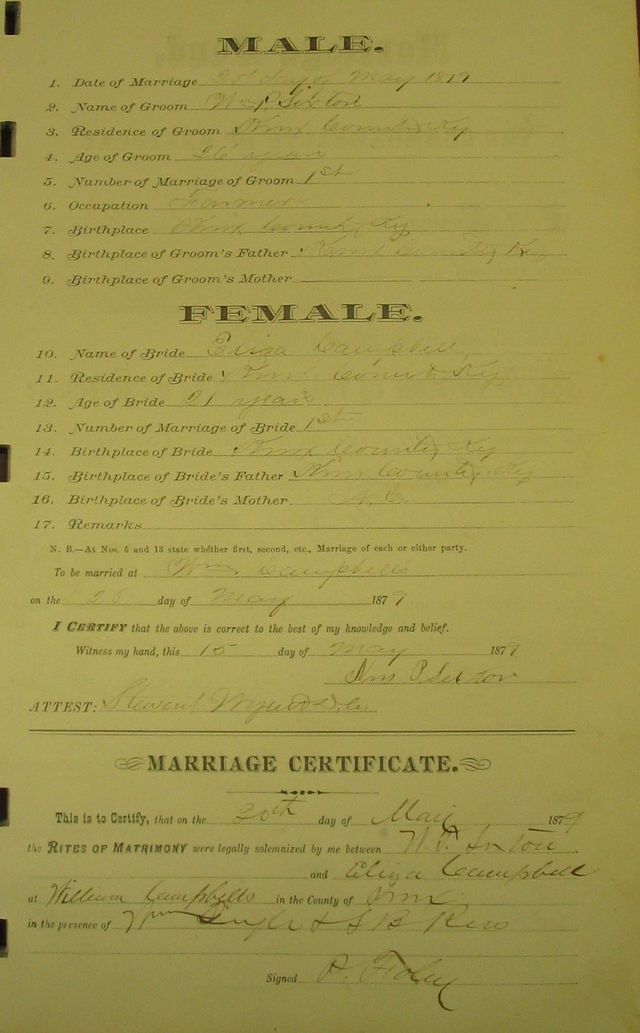 MALE.
1. Date of Marriage 20th day of May 1879
2. Name of Groom Wm P. Sexton
3. Residence of Groom Knox County Ky
4. Age of Groom years
5. Number of Marriage of Groom 1st
6. Occupation Farmer
7. Birthplace Knox County, Ky
8. Birthplace of Groom's Father Knox County Ky
9. Birthplace of Groom's Mother
FEMALE.
10. Name of Bride Eliza Campbell
11. Residence of Bride Knox County Ky
12. Age of Bride 21 years
13. Number of Marriage of Bride 1st
14. Birthplace of Bride Knox County Ky
15. Birthplace of Bride's Father Knox County Ky
16. Birthplace of Bride's Mother N.C.
17. Remarks
N. B.—At Nos. 5 and 13 state whether first, second, etc., Marriage of each or either party.
To be married at Wm. Campbells
on the 20 day of May 1879
I CERTIFY that the above is correct to the best of my knowledge and belief.
Witness my hand, this 15 day of May 1879
Wm P Sexton
ATTEST:
MARRIAGE CERTIFICATE.
This is to Certify, that on the 20th day of May 1879
the RITES OF MATRIMONY were legally solemnized by me between W. P. Sexton
and Eliza Campbell
at William Campbells in the County of Knox
in the presence of & S B
Signed P. Foley